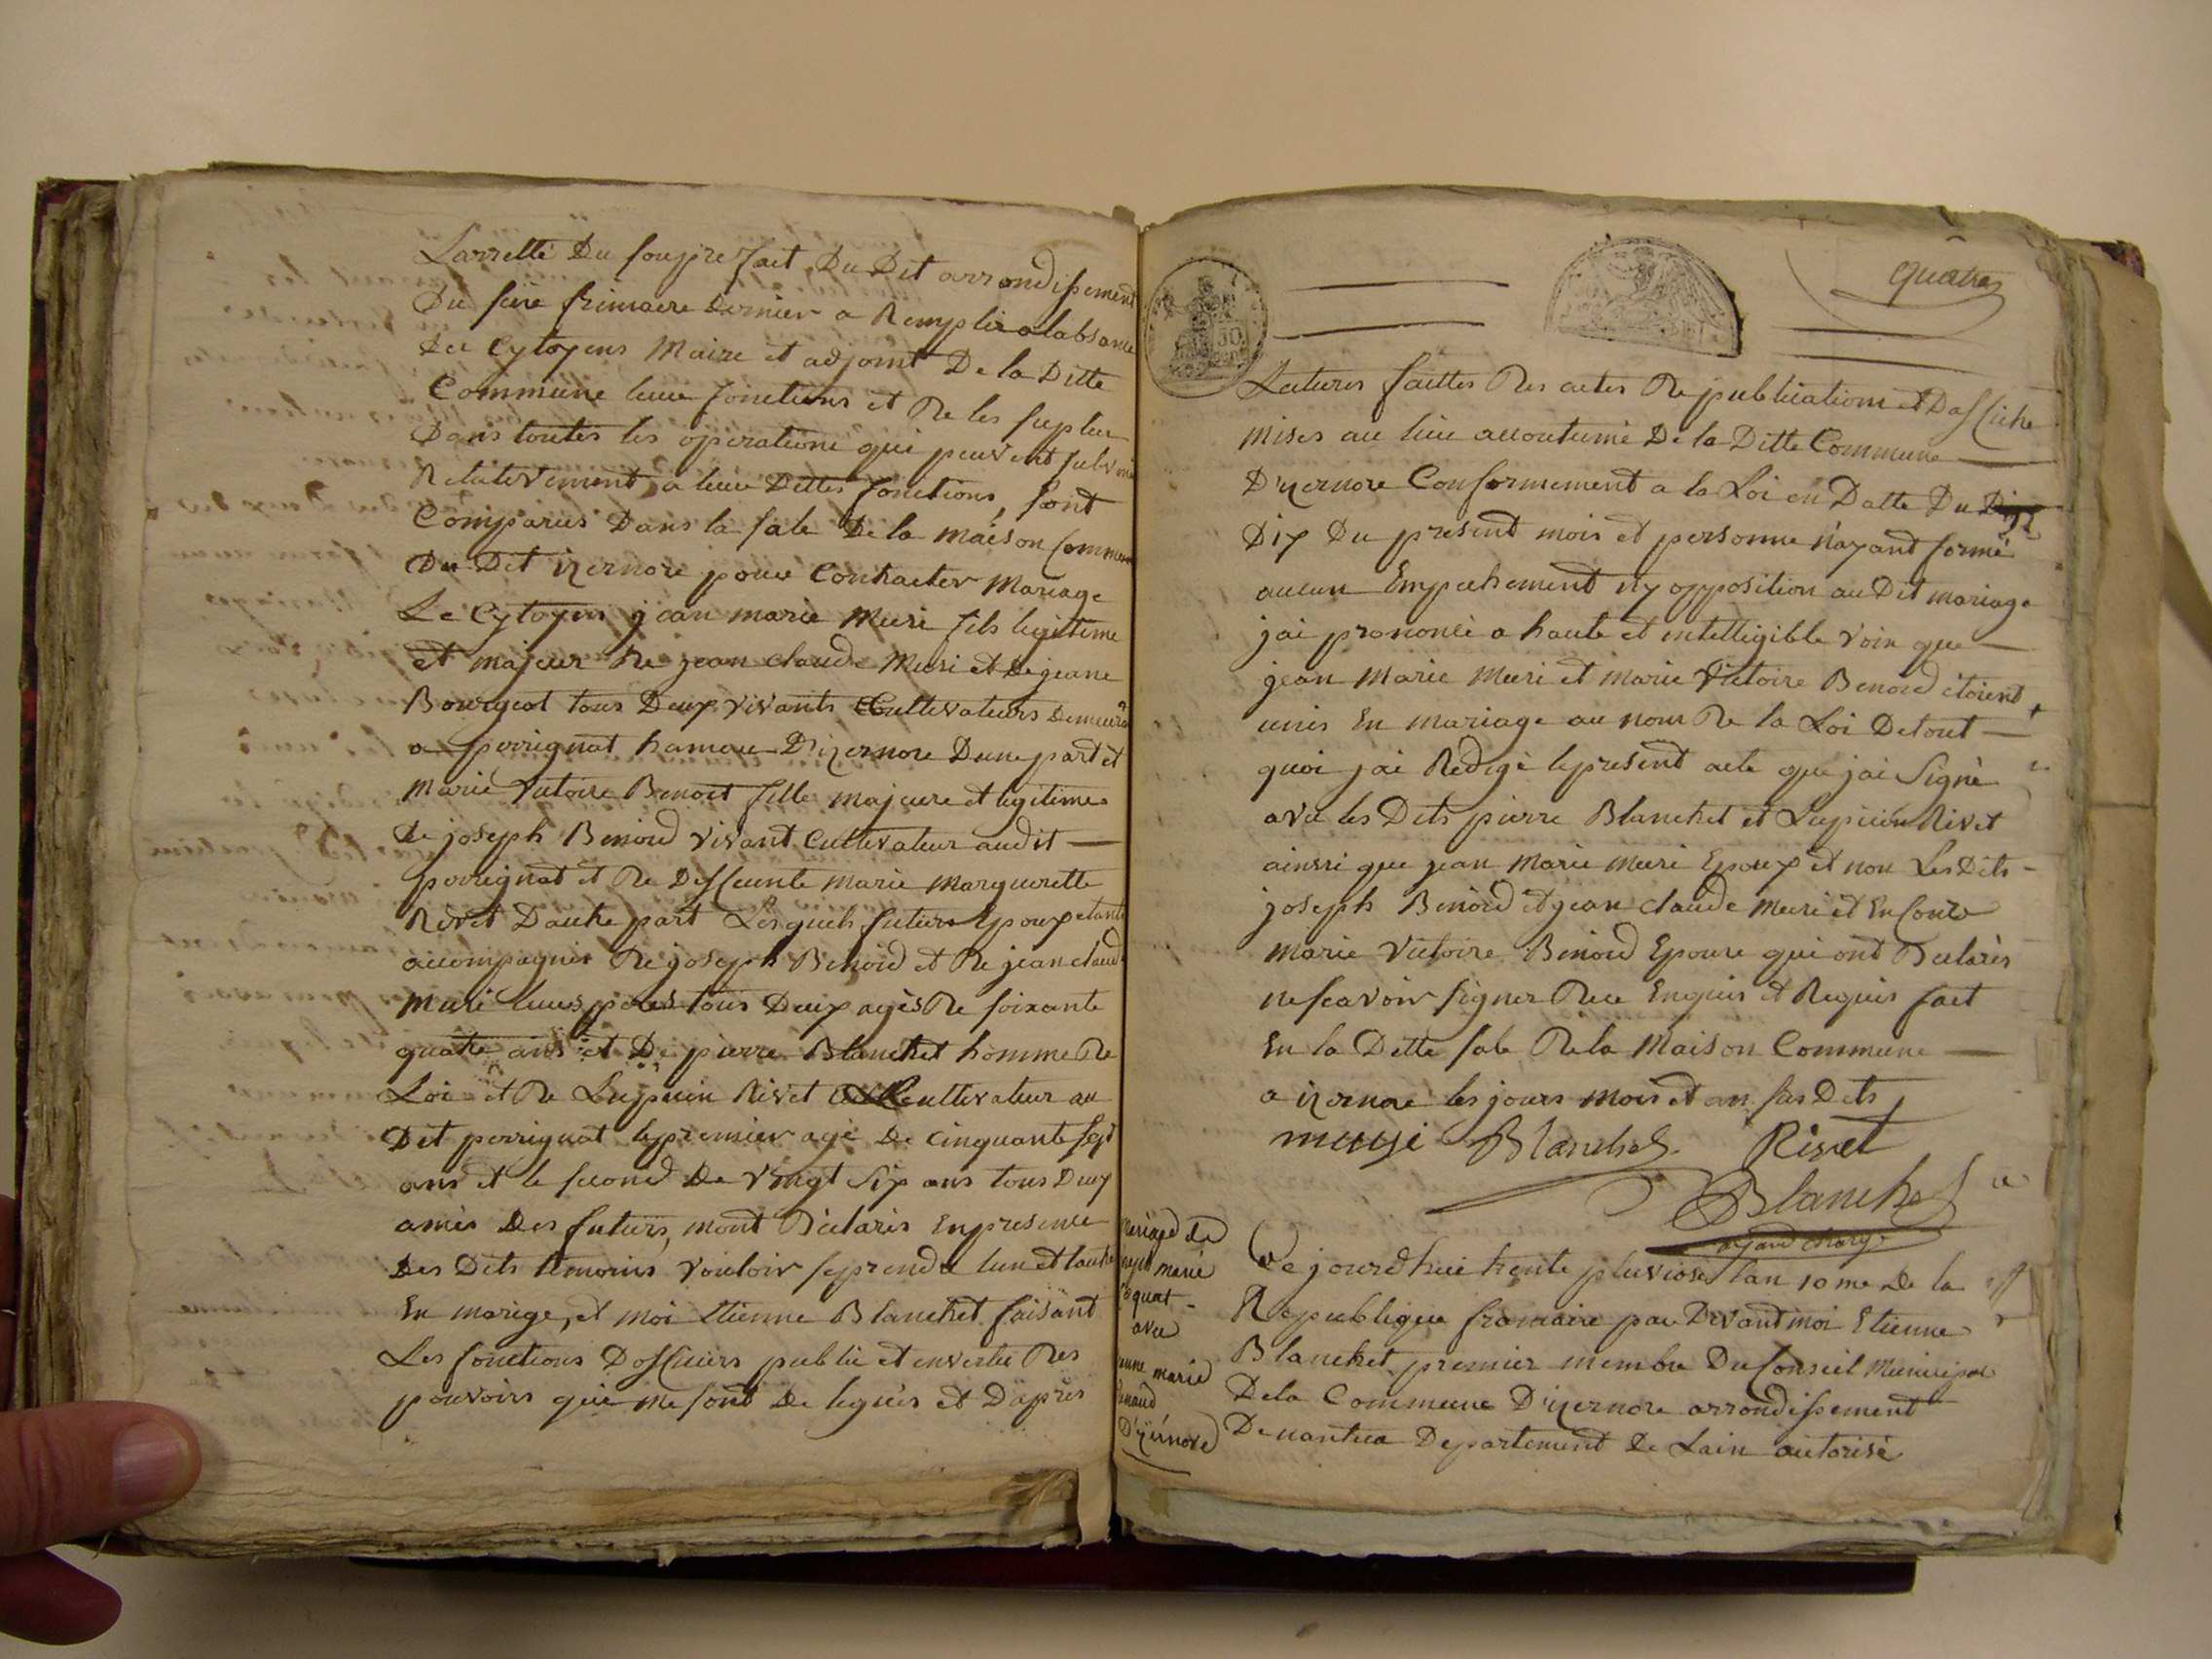 Larretté Du souprefait, Du Dit arrondissement
Du seire frimaire dernier a Remplir a labsance
des Cytoyens Maire et adjoint De la Ditte
Commune leur fonctions et De les supleer
Dans toutes les operations qui peuvent
Relativement a leur Dittes fonctions, sont
Comparus Dans la sale De la maison Commune
Du Dit izernore pour Contracter Mariage
Le Cytoyen jean marie Muri fils legitime
et majeur De jean claude Muri et De jeane
Bourgeot tous Deux vivants Cultivateurs
a perrignat hamau D'izernore Dune part et
Marie Victoire Benoit fille majeure et legitime
de joseph Benoid vivant Cultivateur audit
perrignat et De Deffeunte marie marguerette
Rivet Dautre part Lesquels futurs Epoux etants
accompagnés De joseph Benoid et De jean claude
Muri leurs peres tous Deux agés De soixante
quatre ans et De pierre Blanchet homme De
Loi et De Lupicin Rivet Cultivateur au
Dit perrignat le premier agé De cinquante sept
ans et le second De vingt six ans tous Deux
amis Des futurs, mont Déclarés En presence
Des Dits temoins vouloir se prendre lun et lautre
En marige, et moi Etienne Blanchet faisant
Les fonctions Dofficiers public et envertu Des
pouvoirs qui me sont De legués et Dapres
quatre
50
Lectures faittes Des actes De publications et Daffiche
mises au lieu accoutumé De la Ditte Commune
D'izernore Conformement a la Loi en Datte Du
Dix Du present mois et personne n'ayant formé
aucun Empechement ny opposition au Dit mariage
jai prononcé a haute et intelligible voix que
jean Marie Muri et marie Victoire Benoid étoient
unis En mariage au nom De la Loi De tout
quoi jai Redigé le present acte que jai Signé
avec les Dits pierre Blanchet et Lupicin Rivet
ainsi que jean Marie Muri Epoux et non Les Dits
joseph Benoid et jean claude Muri et Encore
marie Victoire Benoid Epouse qui ont Declarés
ne scavoir signer De ce Enquis et Requis fait
En la Ditte sale De la Maison Commune
a izernore les jours mois et an sus Dits
Blanchet Rivet
Blanchet
mariage de
marie
avec
marie
D'izernore
Ce jourdhui trente pluviose lan 10me De la
Republique francaise par Devant moi Etienne
Blanchet premier membre Du Conseil Municipal
De la Commune D'izernore arrondissement
De nantua Departement De Lain autorisé